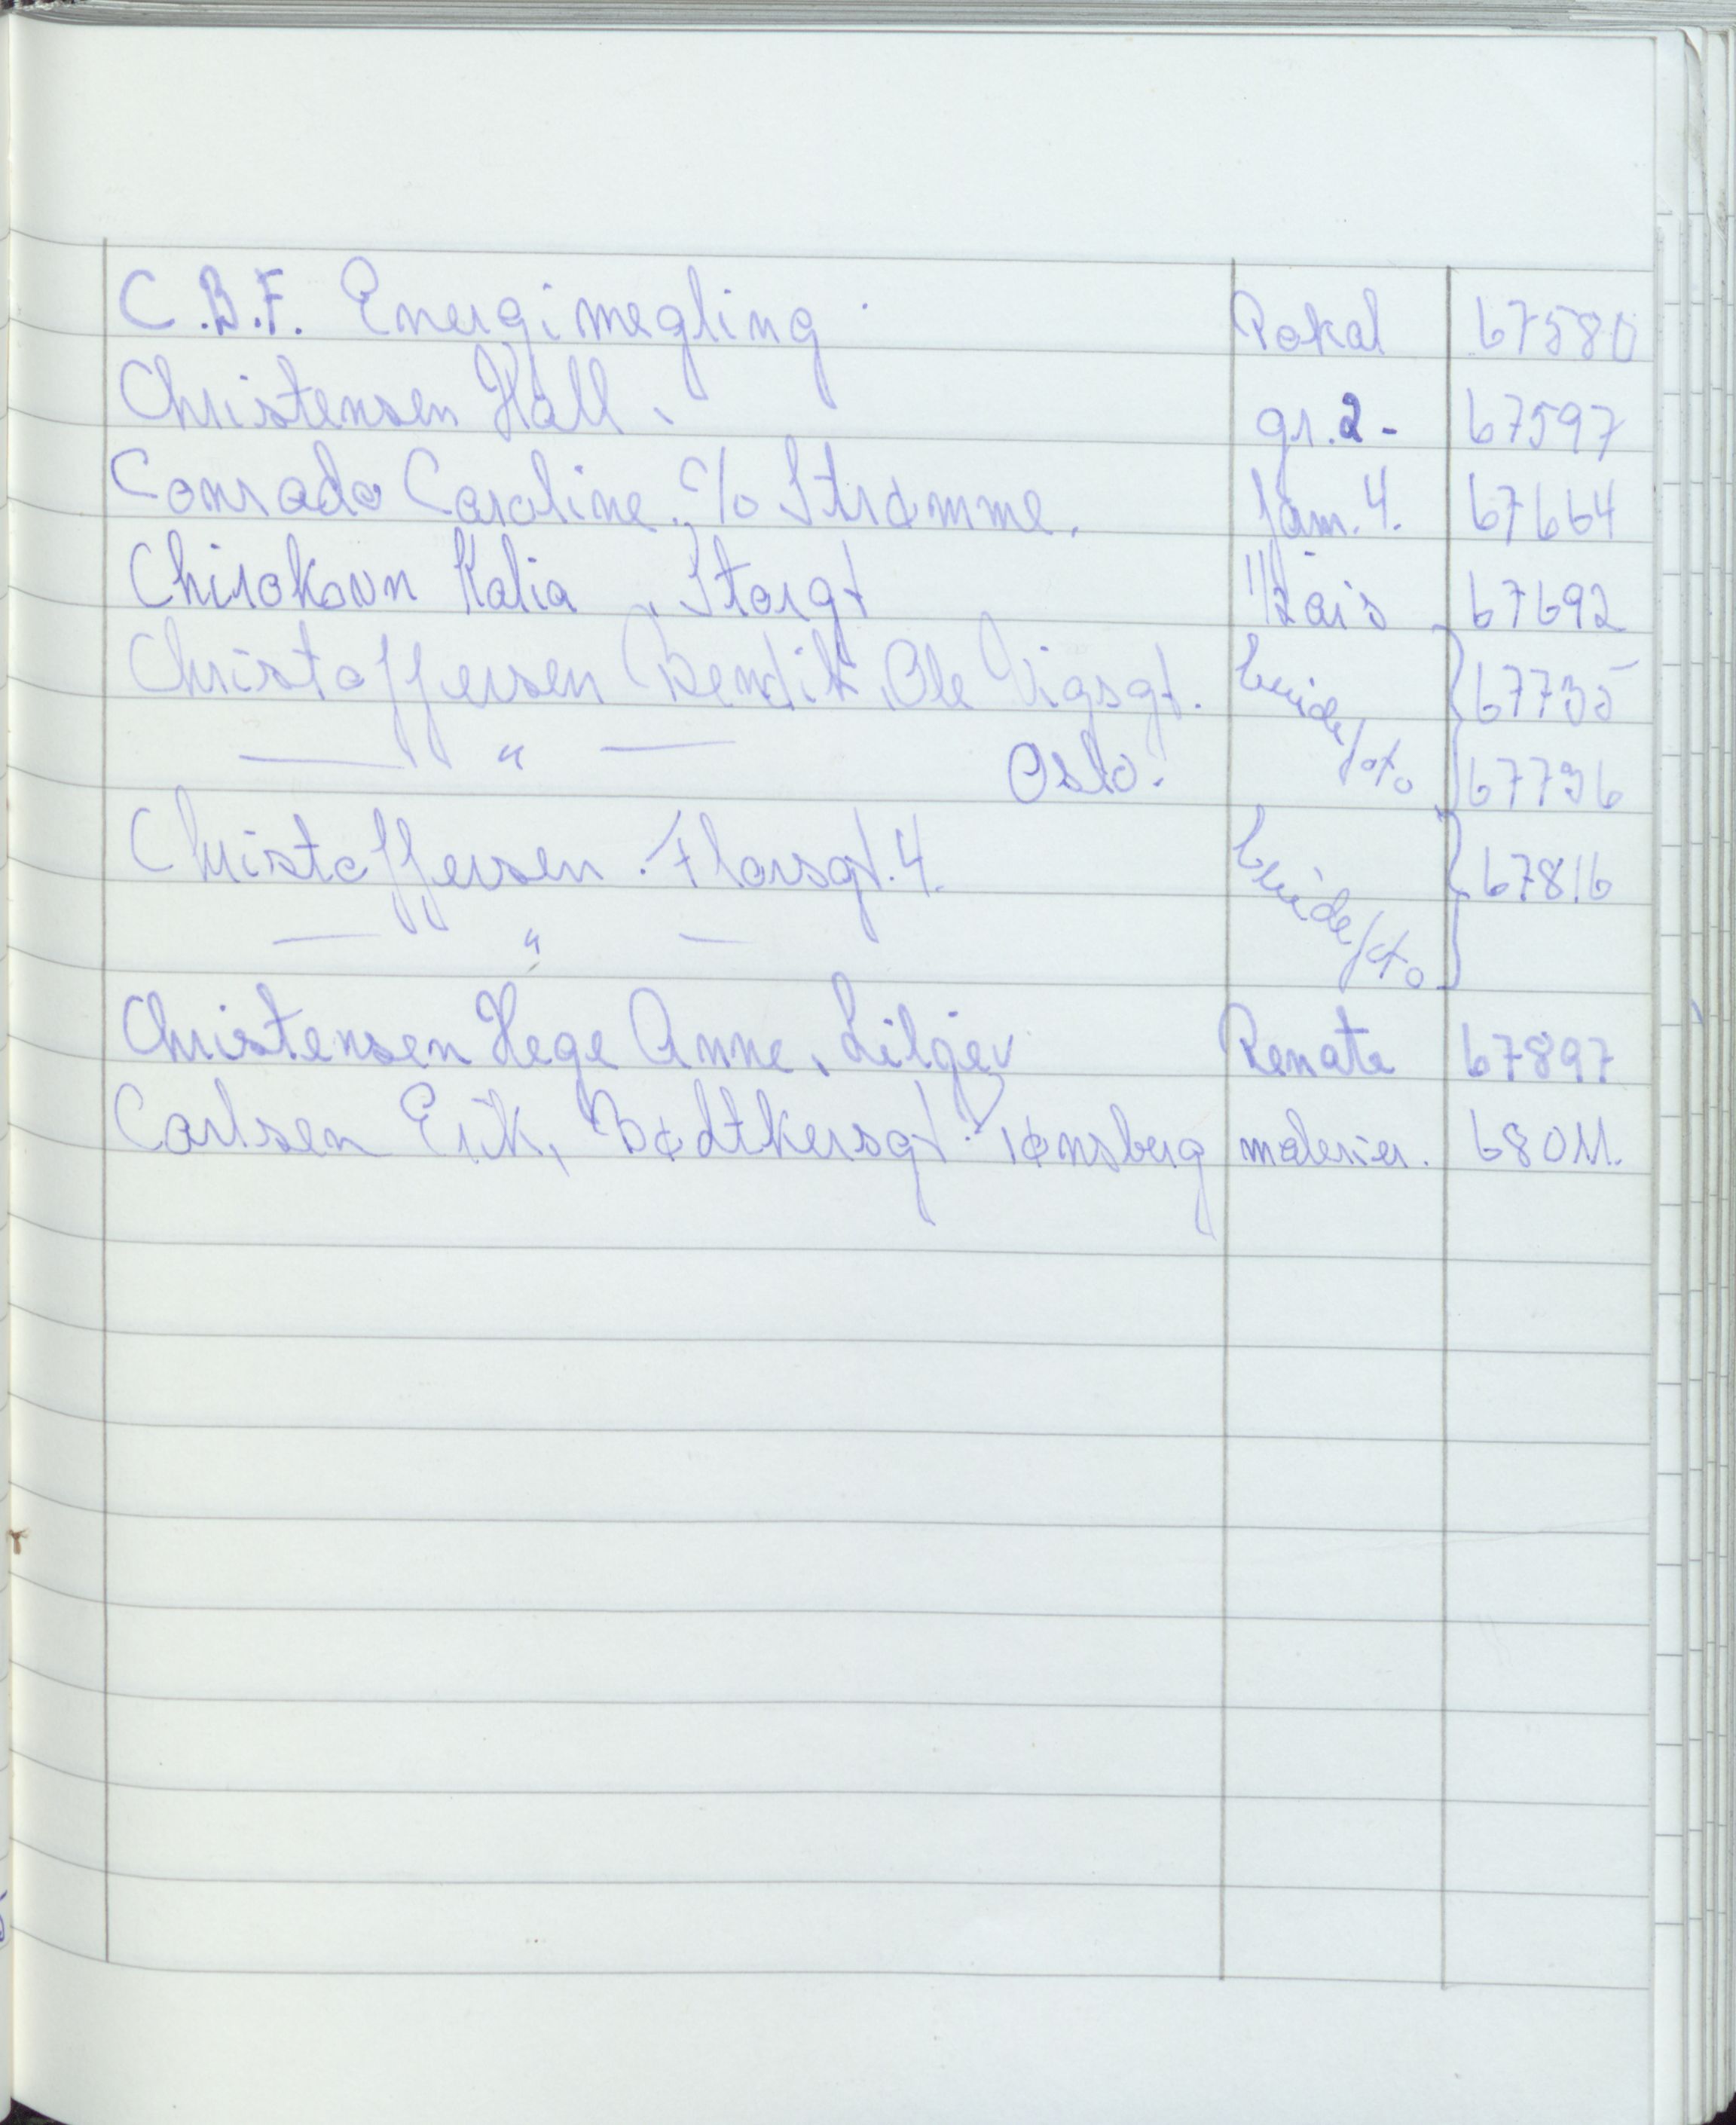 C.B.F. Energimegling Pokal 67580
Christensen Håll. gr. 2- 67597
Conrado Caroline. c/o Strømme. fam. 4. 67664
Chirokovn Katia, Storgt 1/2 års 67692
Christoffersen Bendik, Ole Vigsgt. 67735
— " — Oslo. 67736
Christoffersen. Florsgt. 4. 67816
— " —
Christensen Hege Anne, Liljev Renate 67897
Carlsen Erik, Bødtkersgt. Tønsberg malerier. 68011.